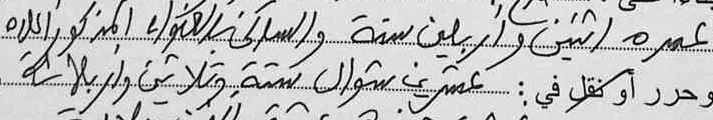 عمره اثنين وأربعين سنة والساكن بالعنوان المذكور أعلاه
وحرر أو نقل في : عشرين شوال ستة وثلاثين وأربعمائة